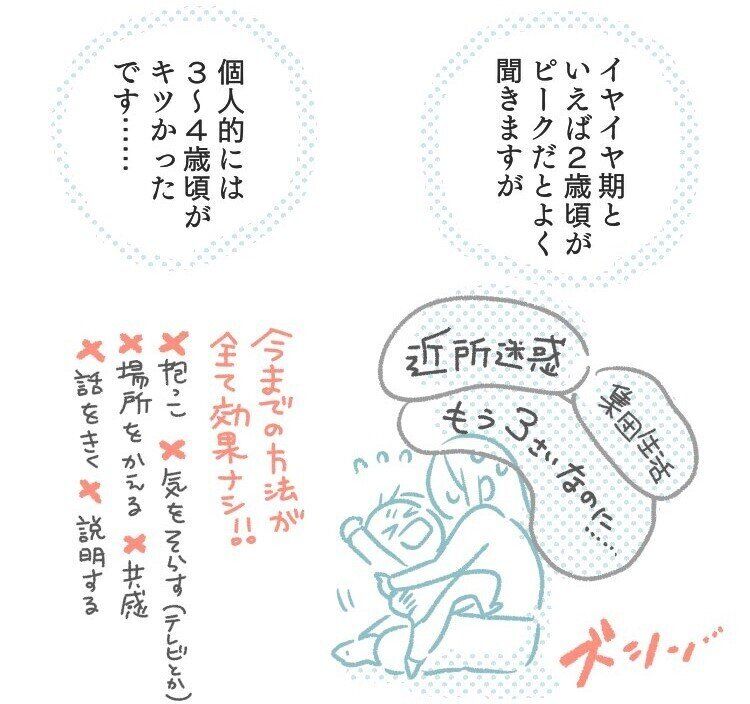 イヤイヤ期と
いえば2歳頃が
ピークだとよく
聞きますが
個人的には
3〜4歳頃が
キツかった
です……
近所迷惑
集団生活
もう3さいなのに……
ズーン…
今までの方法が
全て効果ナシ!!
✖抱っこ ✖気をそらす(テレビとか)
✖場所をかえる ✖共感
✖話をきく ✖説明する